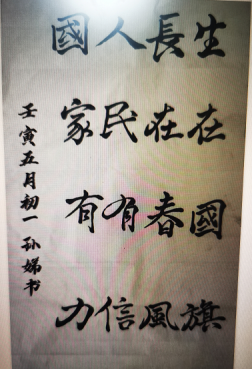 生在國旗
長在春風
人民有信
國家有力
壬寅五月初一 孙娣书